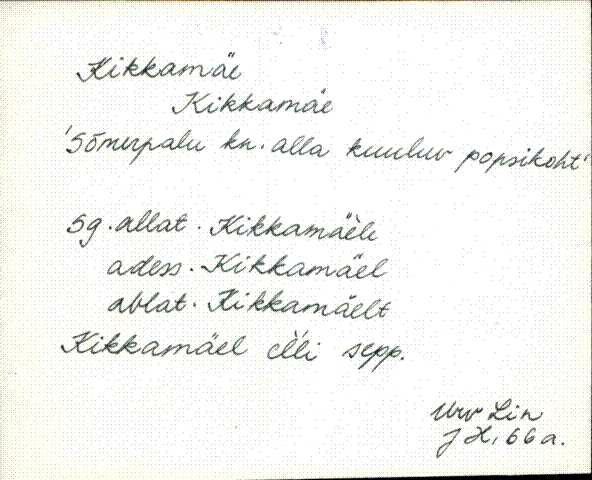 Kikkamäe
Kikkamäe
'Sõmerpalu kn. alla kuuluv popsikoht'
Sg. allat. Kikkamäèle
adess. Kikkamäel
ablat. Kikkamäelt
Kikkamäel elli sepp.
Urv Lin
J H, 66 a.